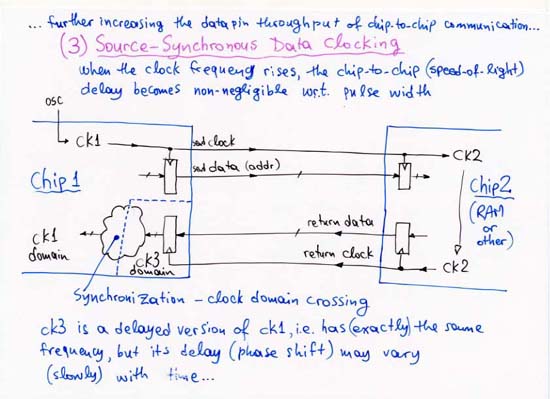 ... further increasing the data pin throughput of chip-to-chip communication...
(3) Source-Synchronous Data Clocking
when the clock frequency rises, the chip-to-chip (speed-of-light)
delay becomes non-negligible w.r.t. pulse width
OSC
CK1
send clock
CK2
send data (addr)
Chip1
Chip2
(RAM
or
other)
return data
CK1
domain
CK3
domain
return clock
CK2
Synchronization - clock domain crossing
CK3 is a delayed version of CK1, i.e. has (exactly) the same
frequency, but its delay (phase shift) may vary
(slowly) with time...